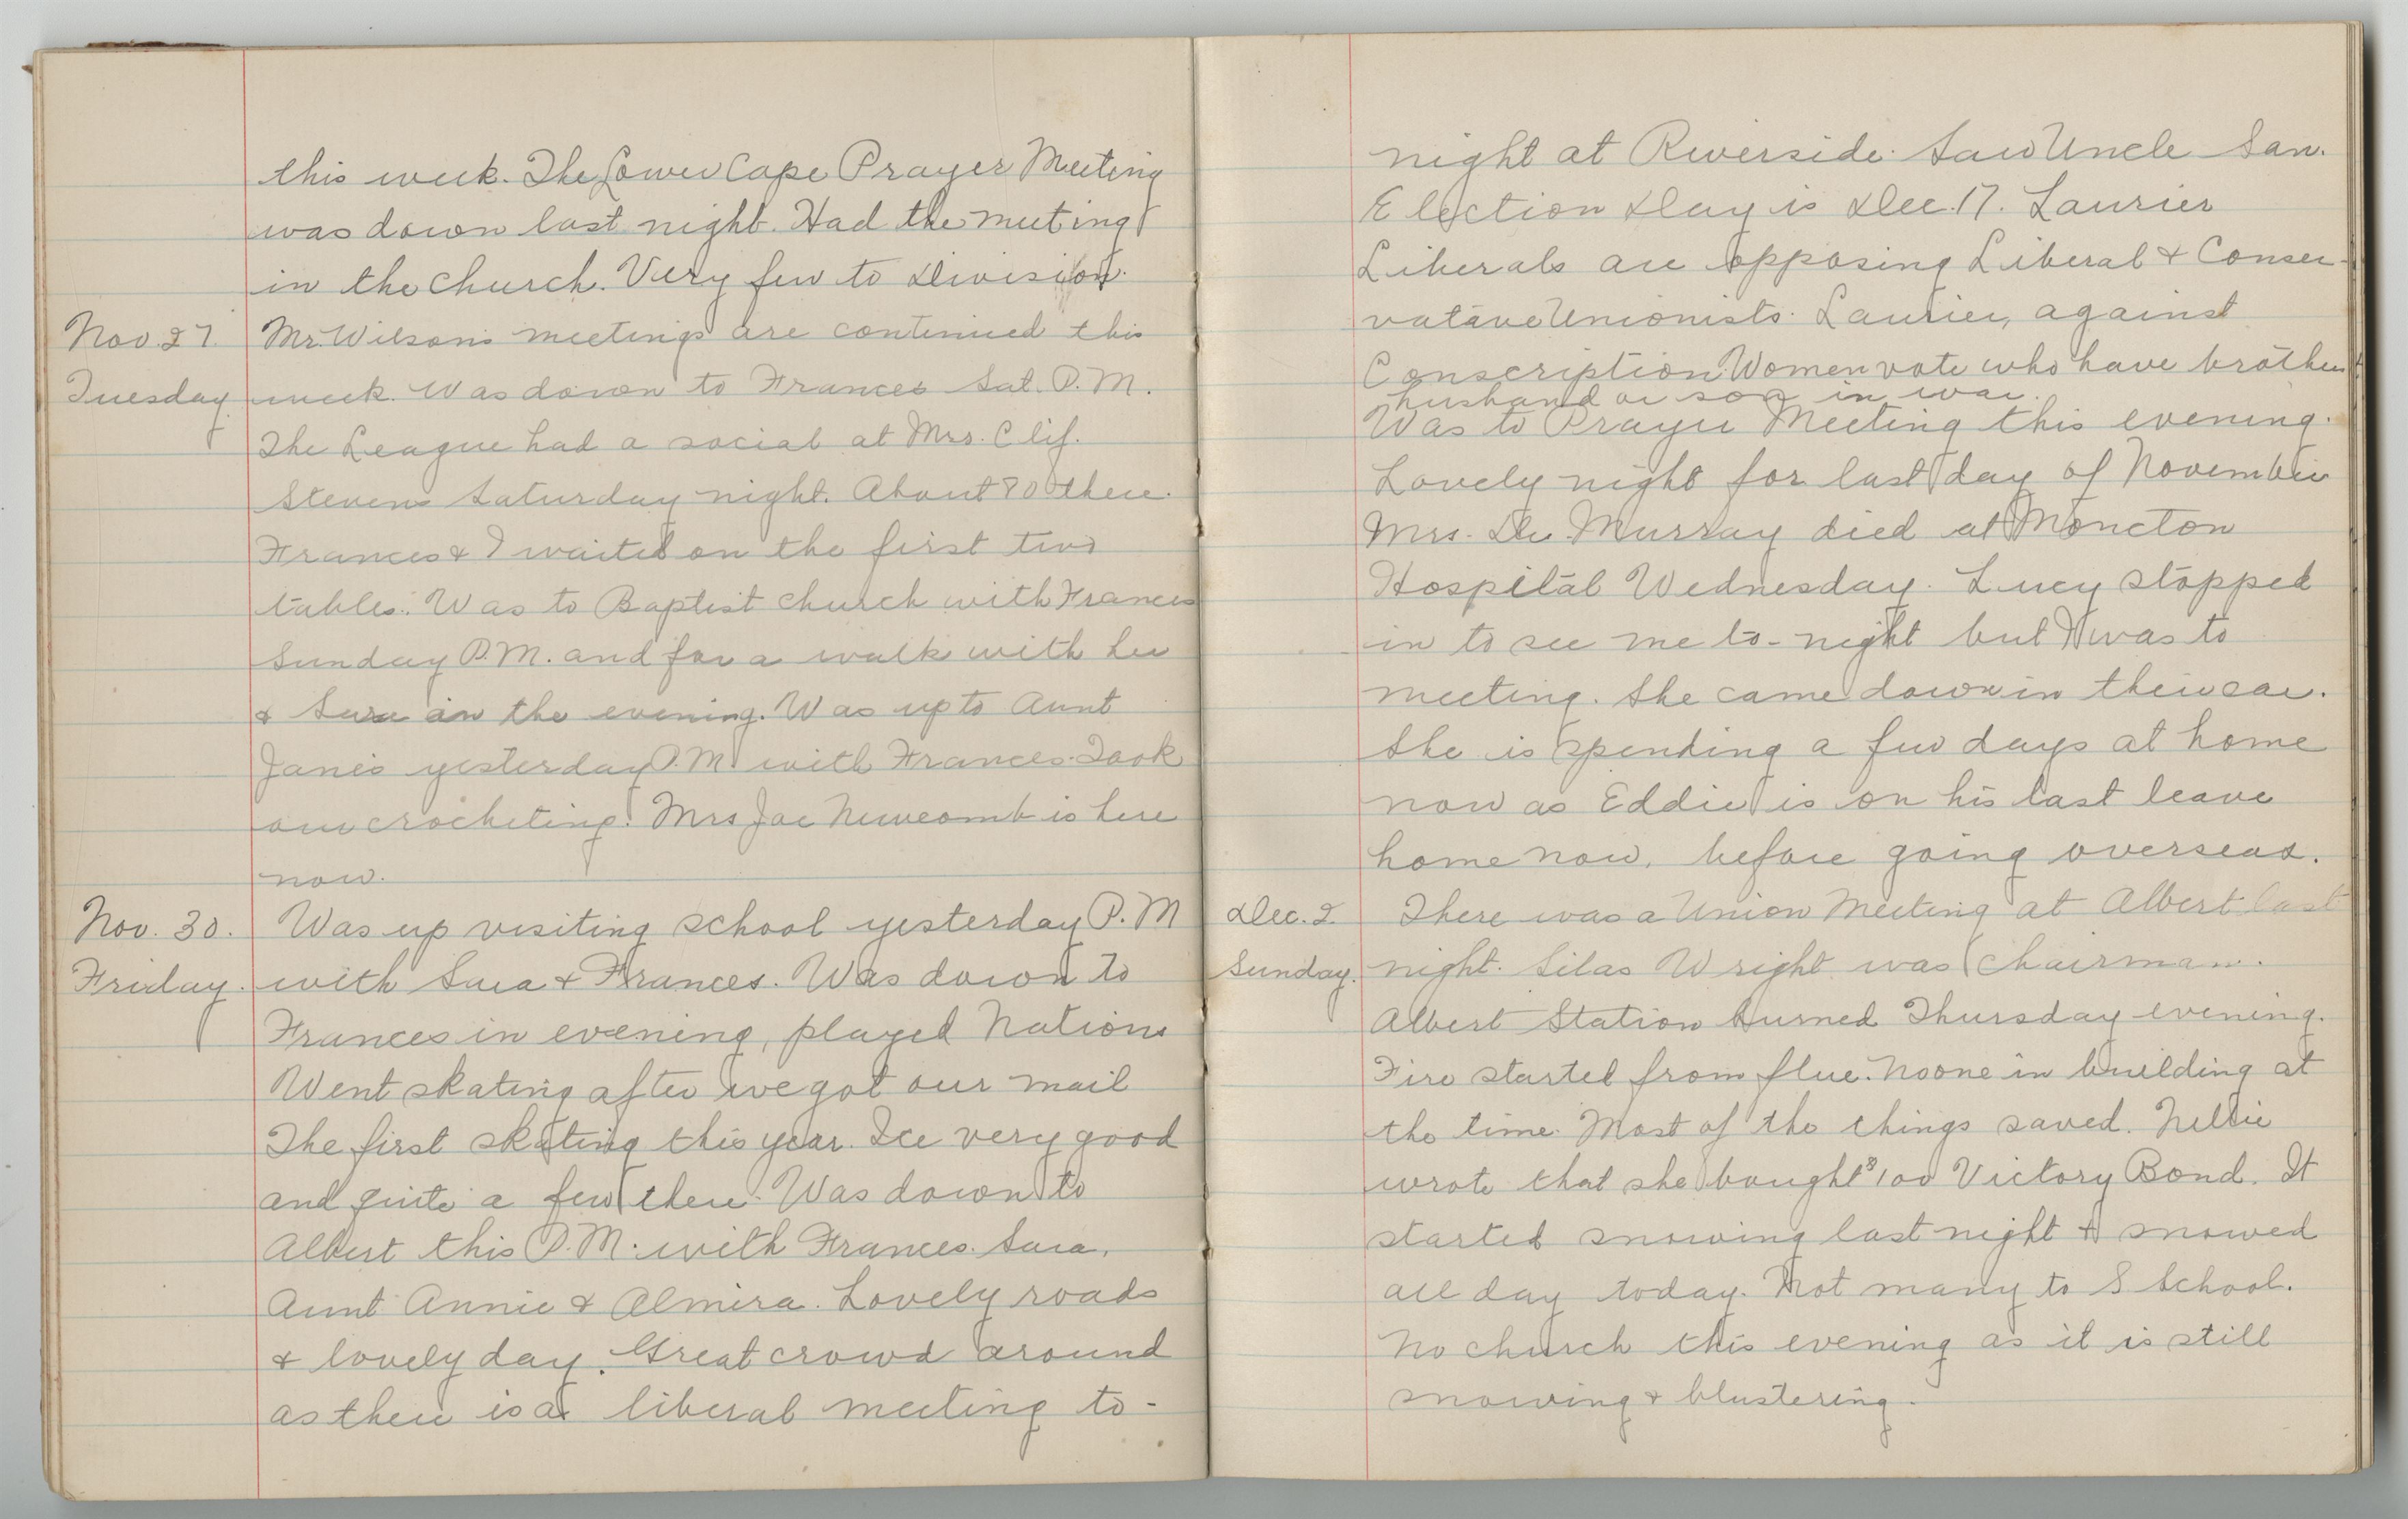 this week. The Lower Cape Prayer Meeting
was down last night. Had the meeting
in the church. Very few to Division.
Nov. 27. Mr. Wilson's meetings are continued this
Tuesday. week. Was down to Frances Sat. P.M.
The League had a social at Mrs. Clif.
Stevens Saturday night. About 80 there.
Frances & I waited on the first two
tables. Was to Baptist church with Frances
Sunday P.M. and for a walk with her
& Sara in the evening. Was up to Aunt
Janes yesterday P.M. with Frances. Took
our crocheting. Mrs Joe Newcomb is here
now.
Nov. 30. Was up visiting school yesterday P.M
Friday. with Sara & Frances. Was down to
Frances in evening, played Nations
Went skating after we got our mail
The first skating this year. Ice very good
and quite a few there. Was down to
Albert this P.M. with Frances. Sara,
Aunt Annie & Almira. Lovely roads
& lovely day. Great crowd around
as there is a liberal meeting to-
night at Riverside. Saw Uncle San.
Election Day is Dec. 17. Laurier
Liberals are opposing Liberal & Conser-
vatave Unionists. Laurier, against
Conscription. Women vote who have brother
husband or son in war.
Was to Prayer Meeting this evening.
Lovely night for last day of November
Mrs. Dr. Murray died at Moncton
Hospital Wednesday. Lucy stopped
in to see me to-night but I was to
meeting. She came down in their car.
She is spending a few days at home
now as Eddie is on his last leave
home now, before going overseas.
Dec. 2 There was a Union Meeting at Albert last
Sunday. night. Silas Wright was chairman.
Albert Station burned Thursday evening.
Fire started from flue. No one in building at
the time. Most of the things saved. Nellie
wrote that she bought $100 Victory Bond. It
started snowing last night & snowed
all day today. Not many to S School.
No church this evening as it is still
snowing & blustering.